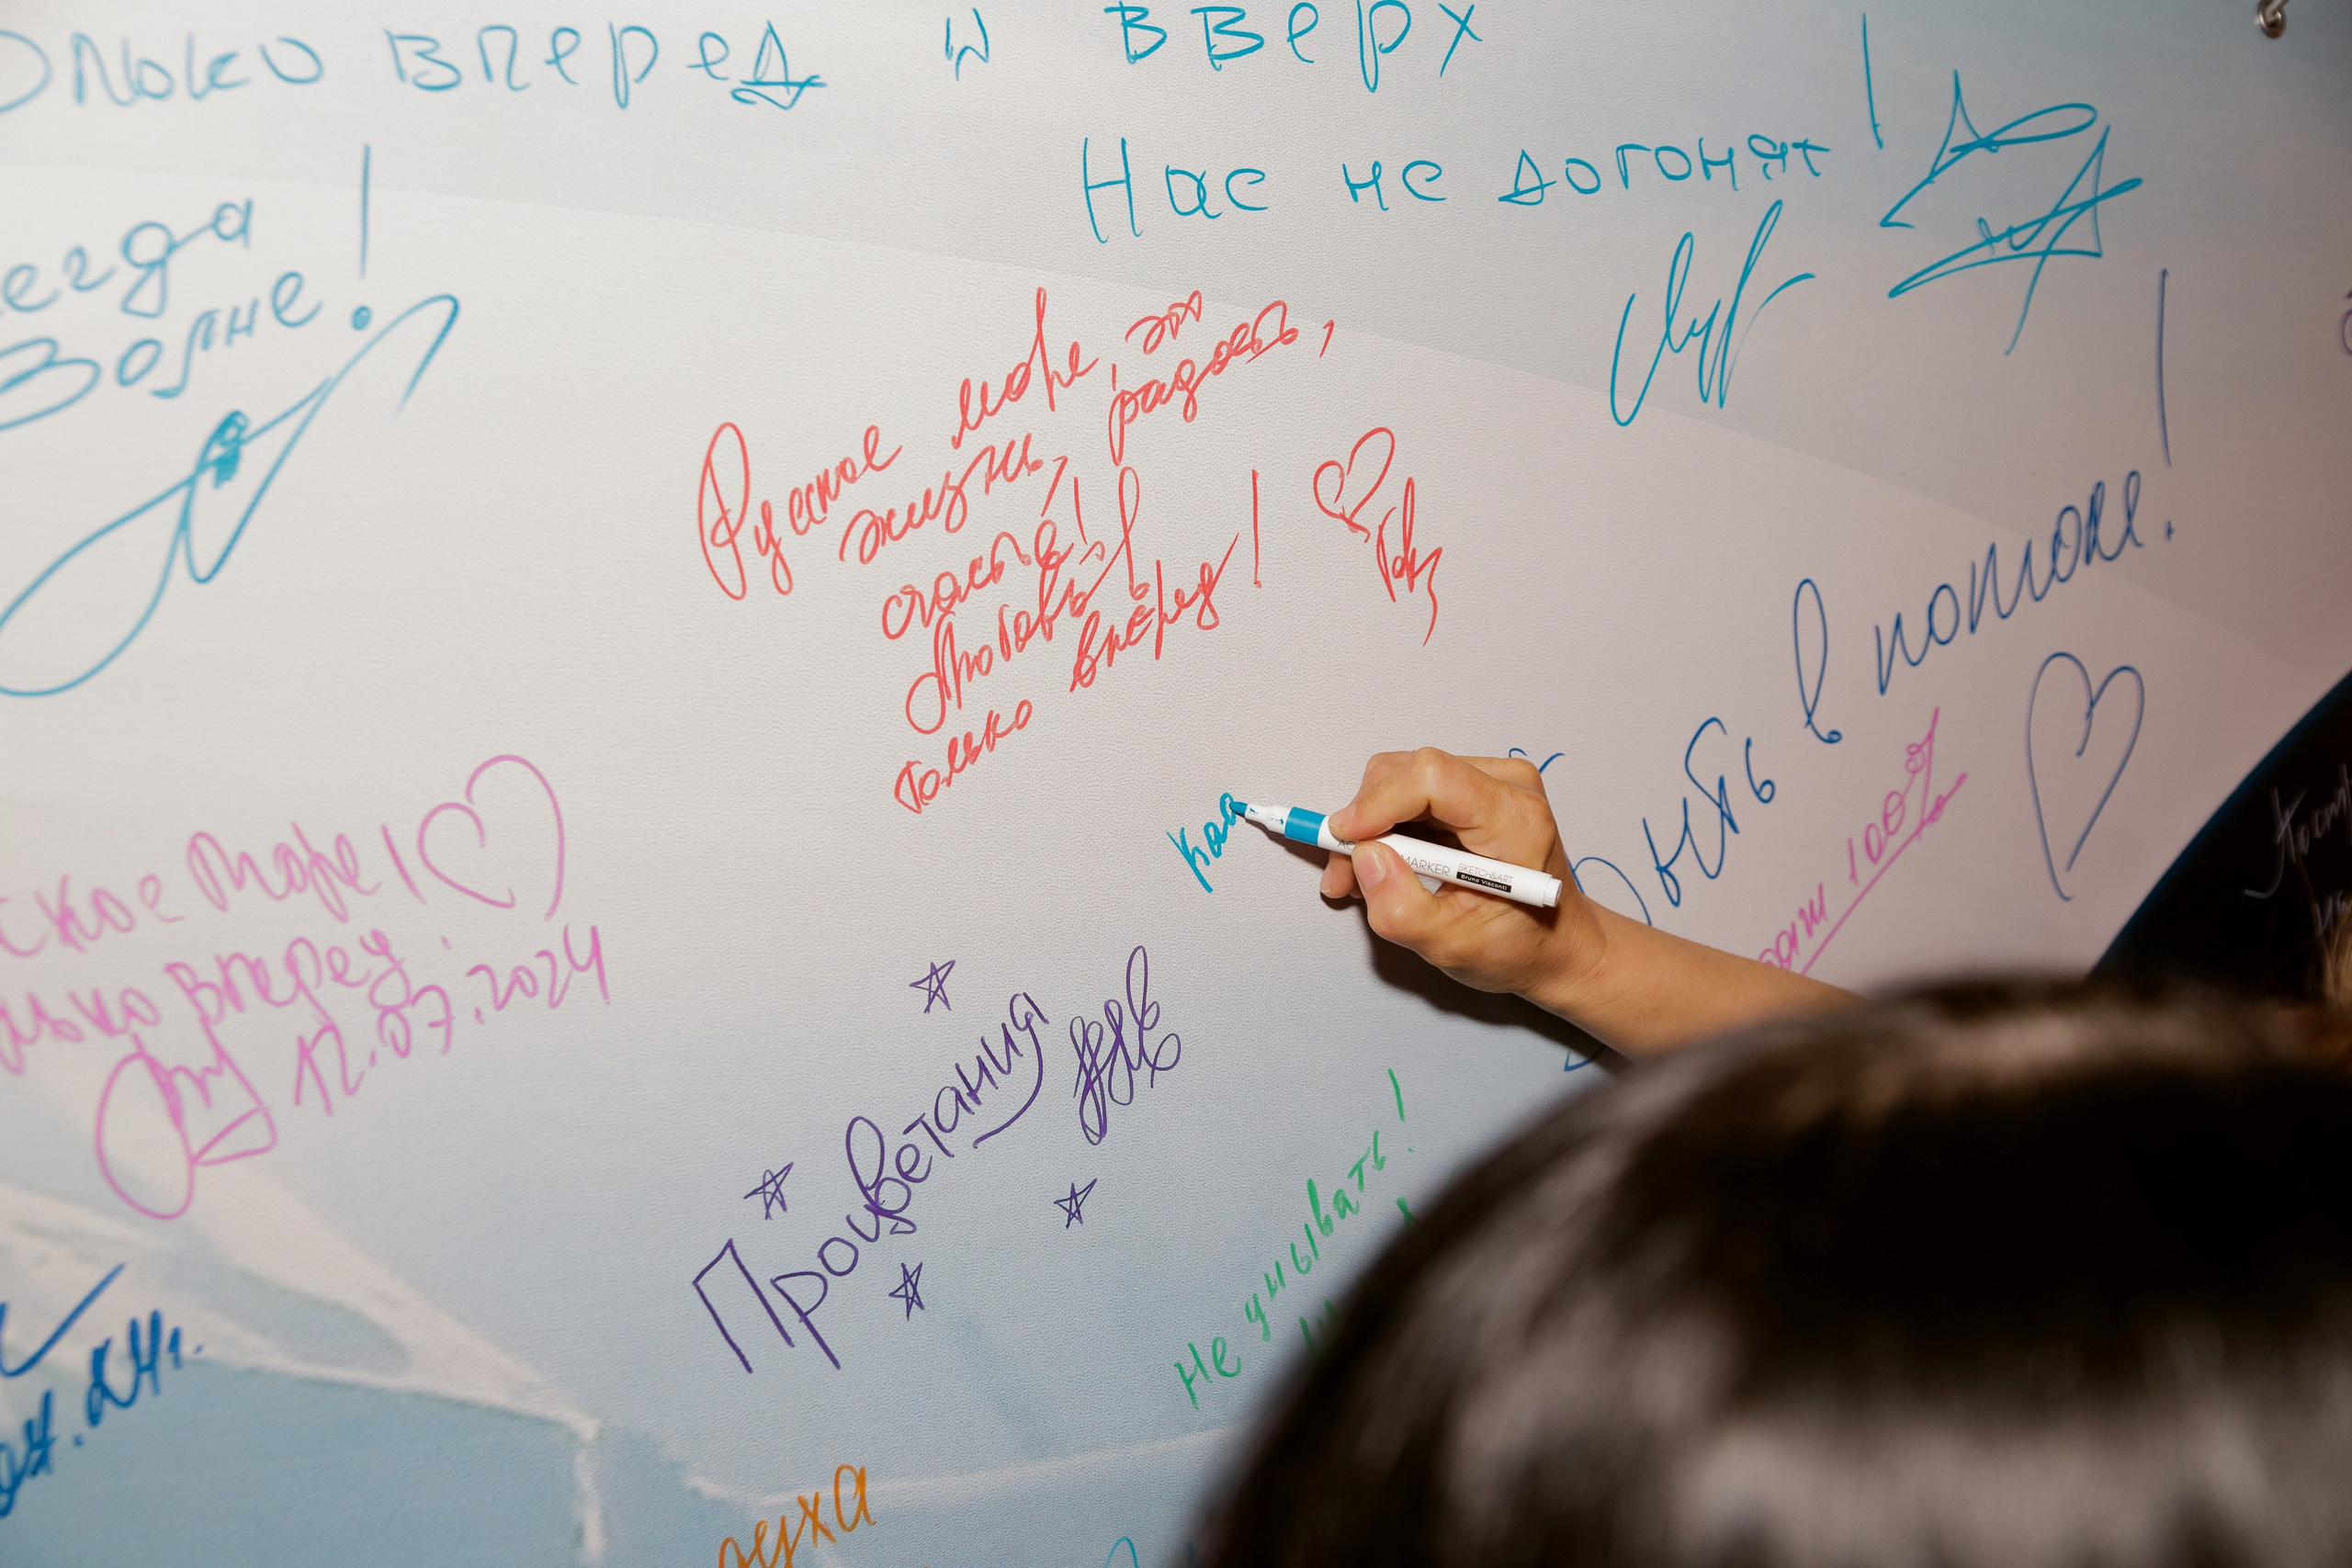 олько вперед и вверх
Нас не догонят!
егда
Волне!
Русское море, это
жизнь, радость,
счастье!
Любовь! в
только вперёд!
Быть в потоке!
100%
ское Море!
лько вперед!
12.07.2024
Процветания
Не унывать!
MARKER
SKETCH&ART
Bruno Visconti
24г.
уха